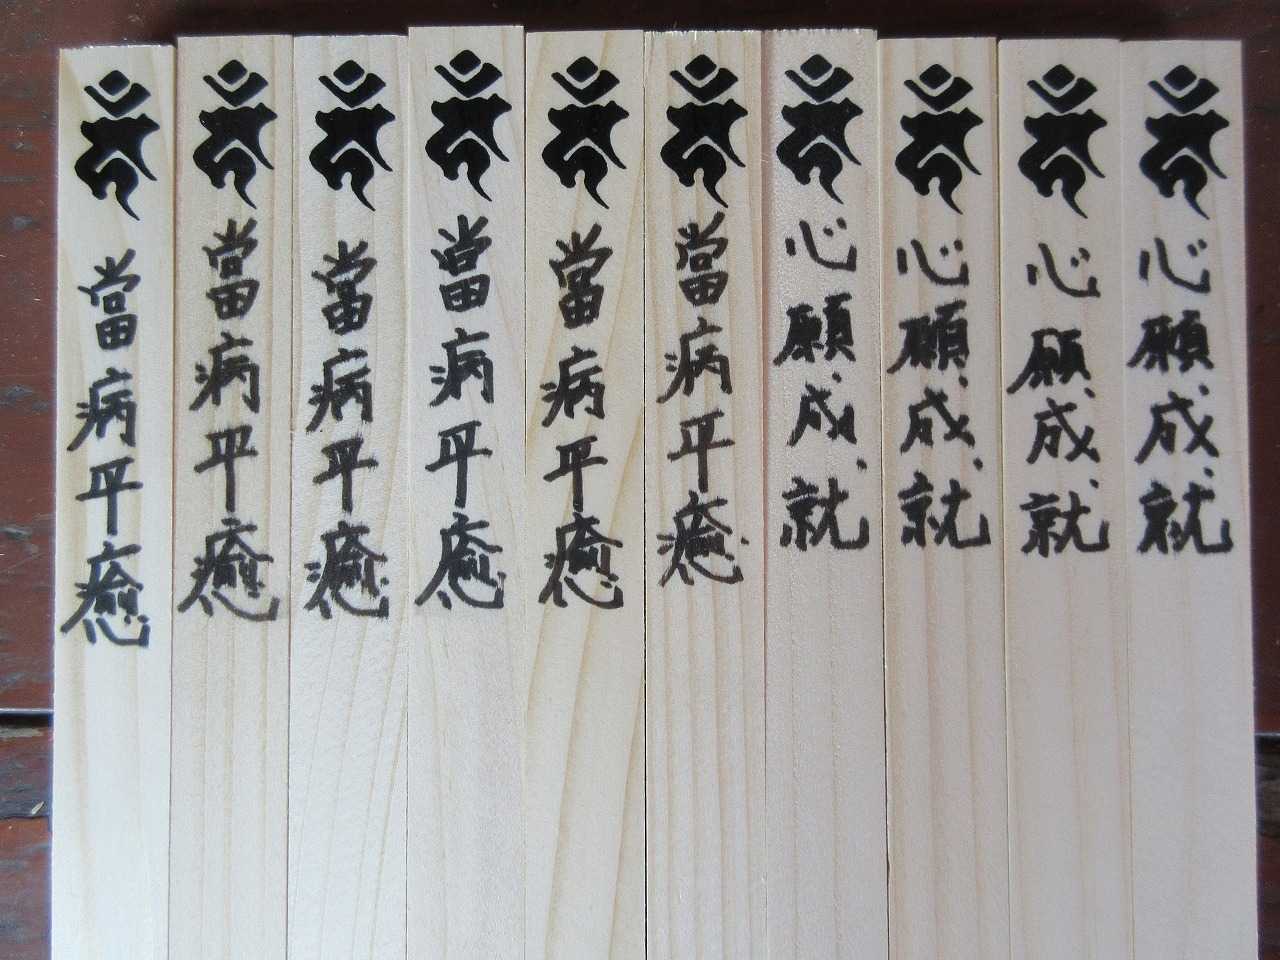 心願成就
心願成就
心願成就
心願成就
當病平癒
當病平癒
當病平癒
當病平癒
當病平癒
當病平癒